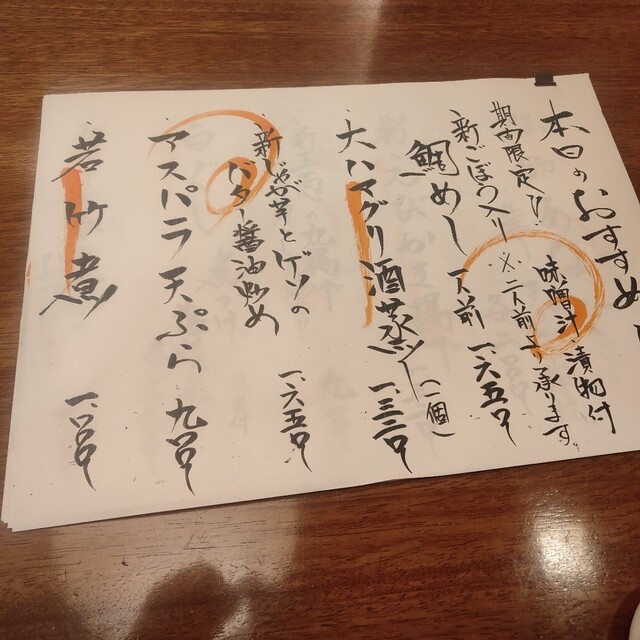 本日のおすすめ
期間限定!!
味噌汁 漬物付
、新ごぼう入り ※二人前より承ります。
鯛めし 一人前 一、六五〇
、大ハマグリ酒蒸し(一個) 一、三二〇
、新じゃが芋とゲソの
バター醤油炒め 一、六五〇
、アスパラ天ぷら 九〇〇
、若竹煮